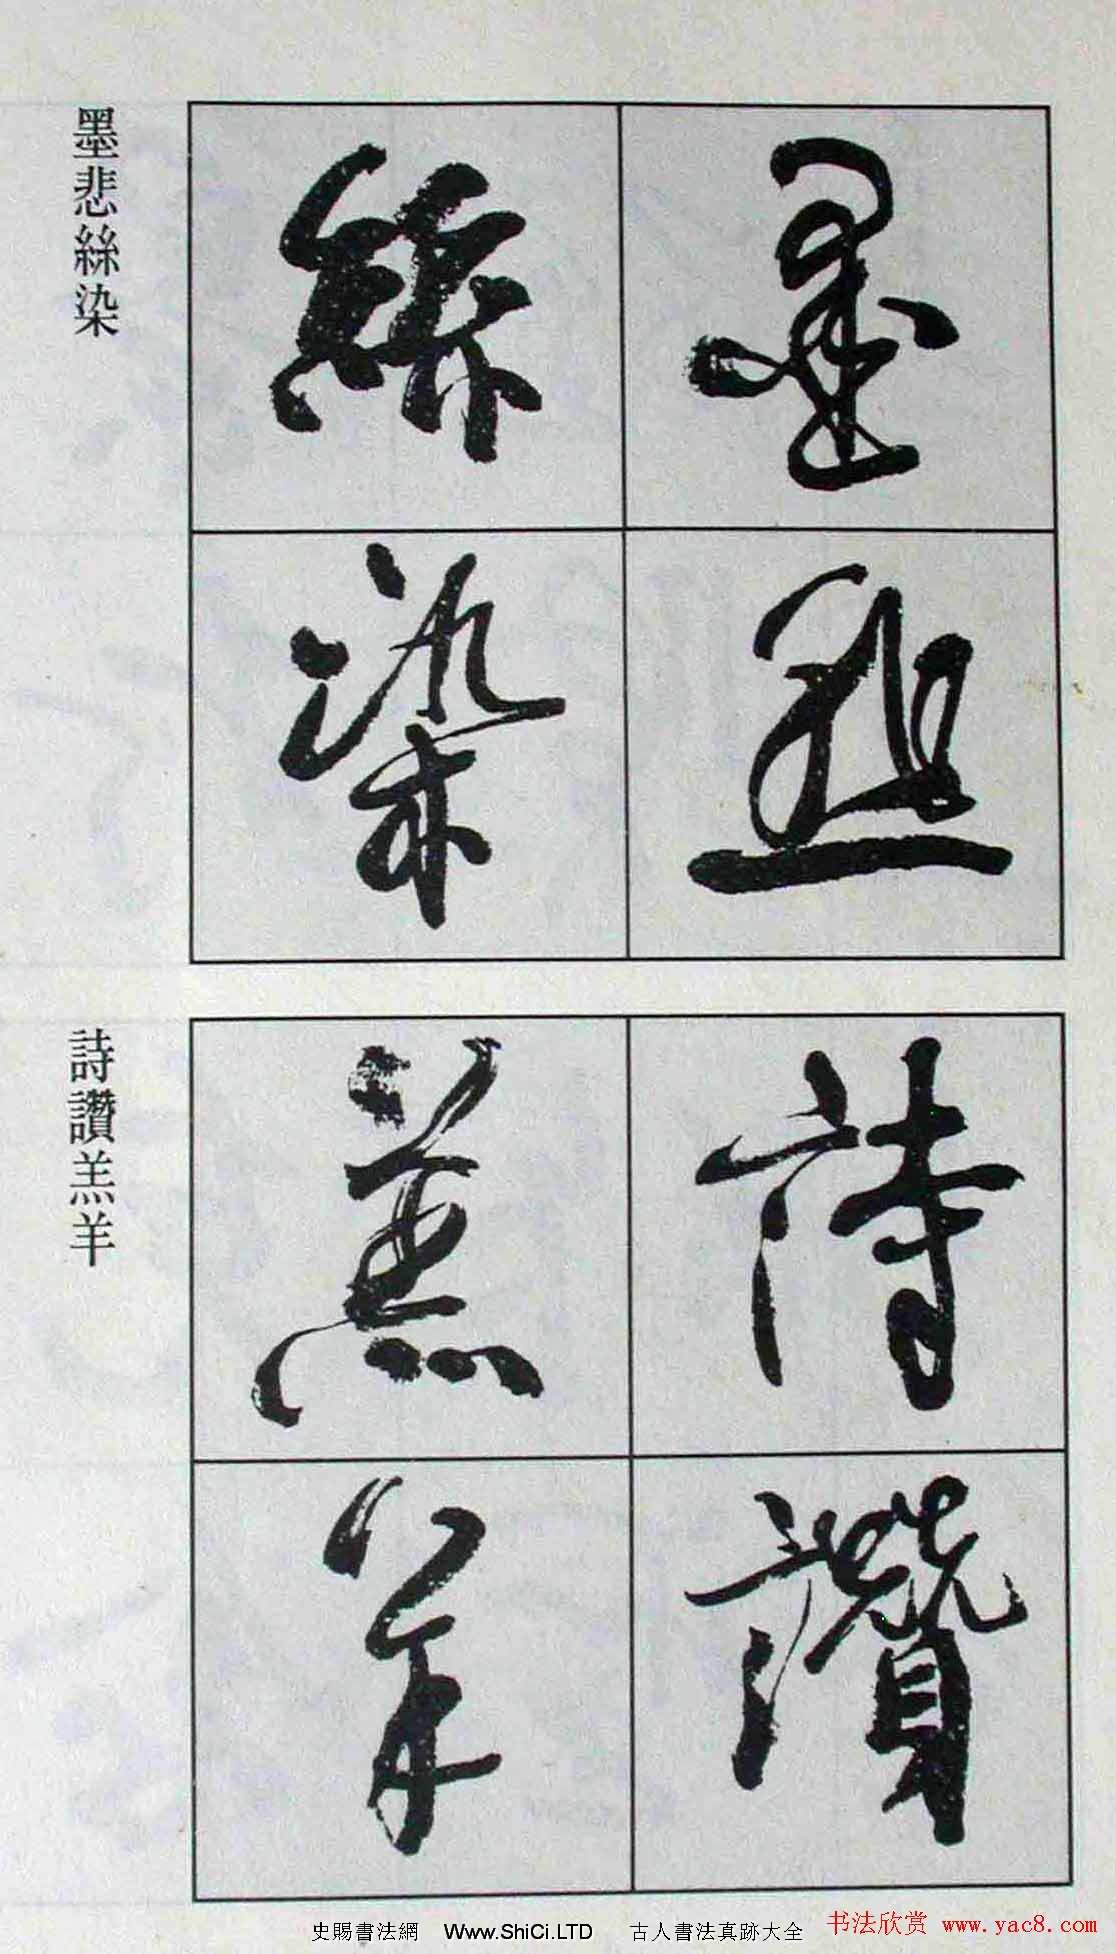 墨悲絲染
墨悲
絲染
詩讚羔羊
詩讚
羔羊
史賜書法網 Www.ShiCi.LTD 古人書法真跡大全
书法欣赏 www.yac8.com